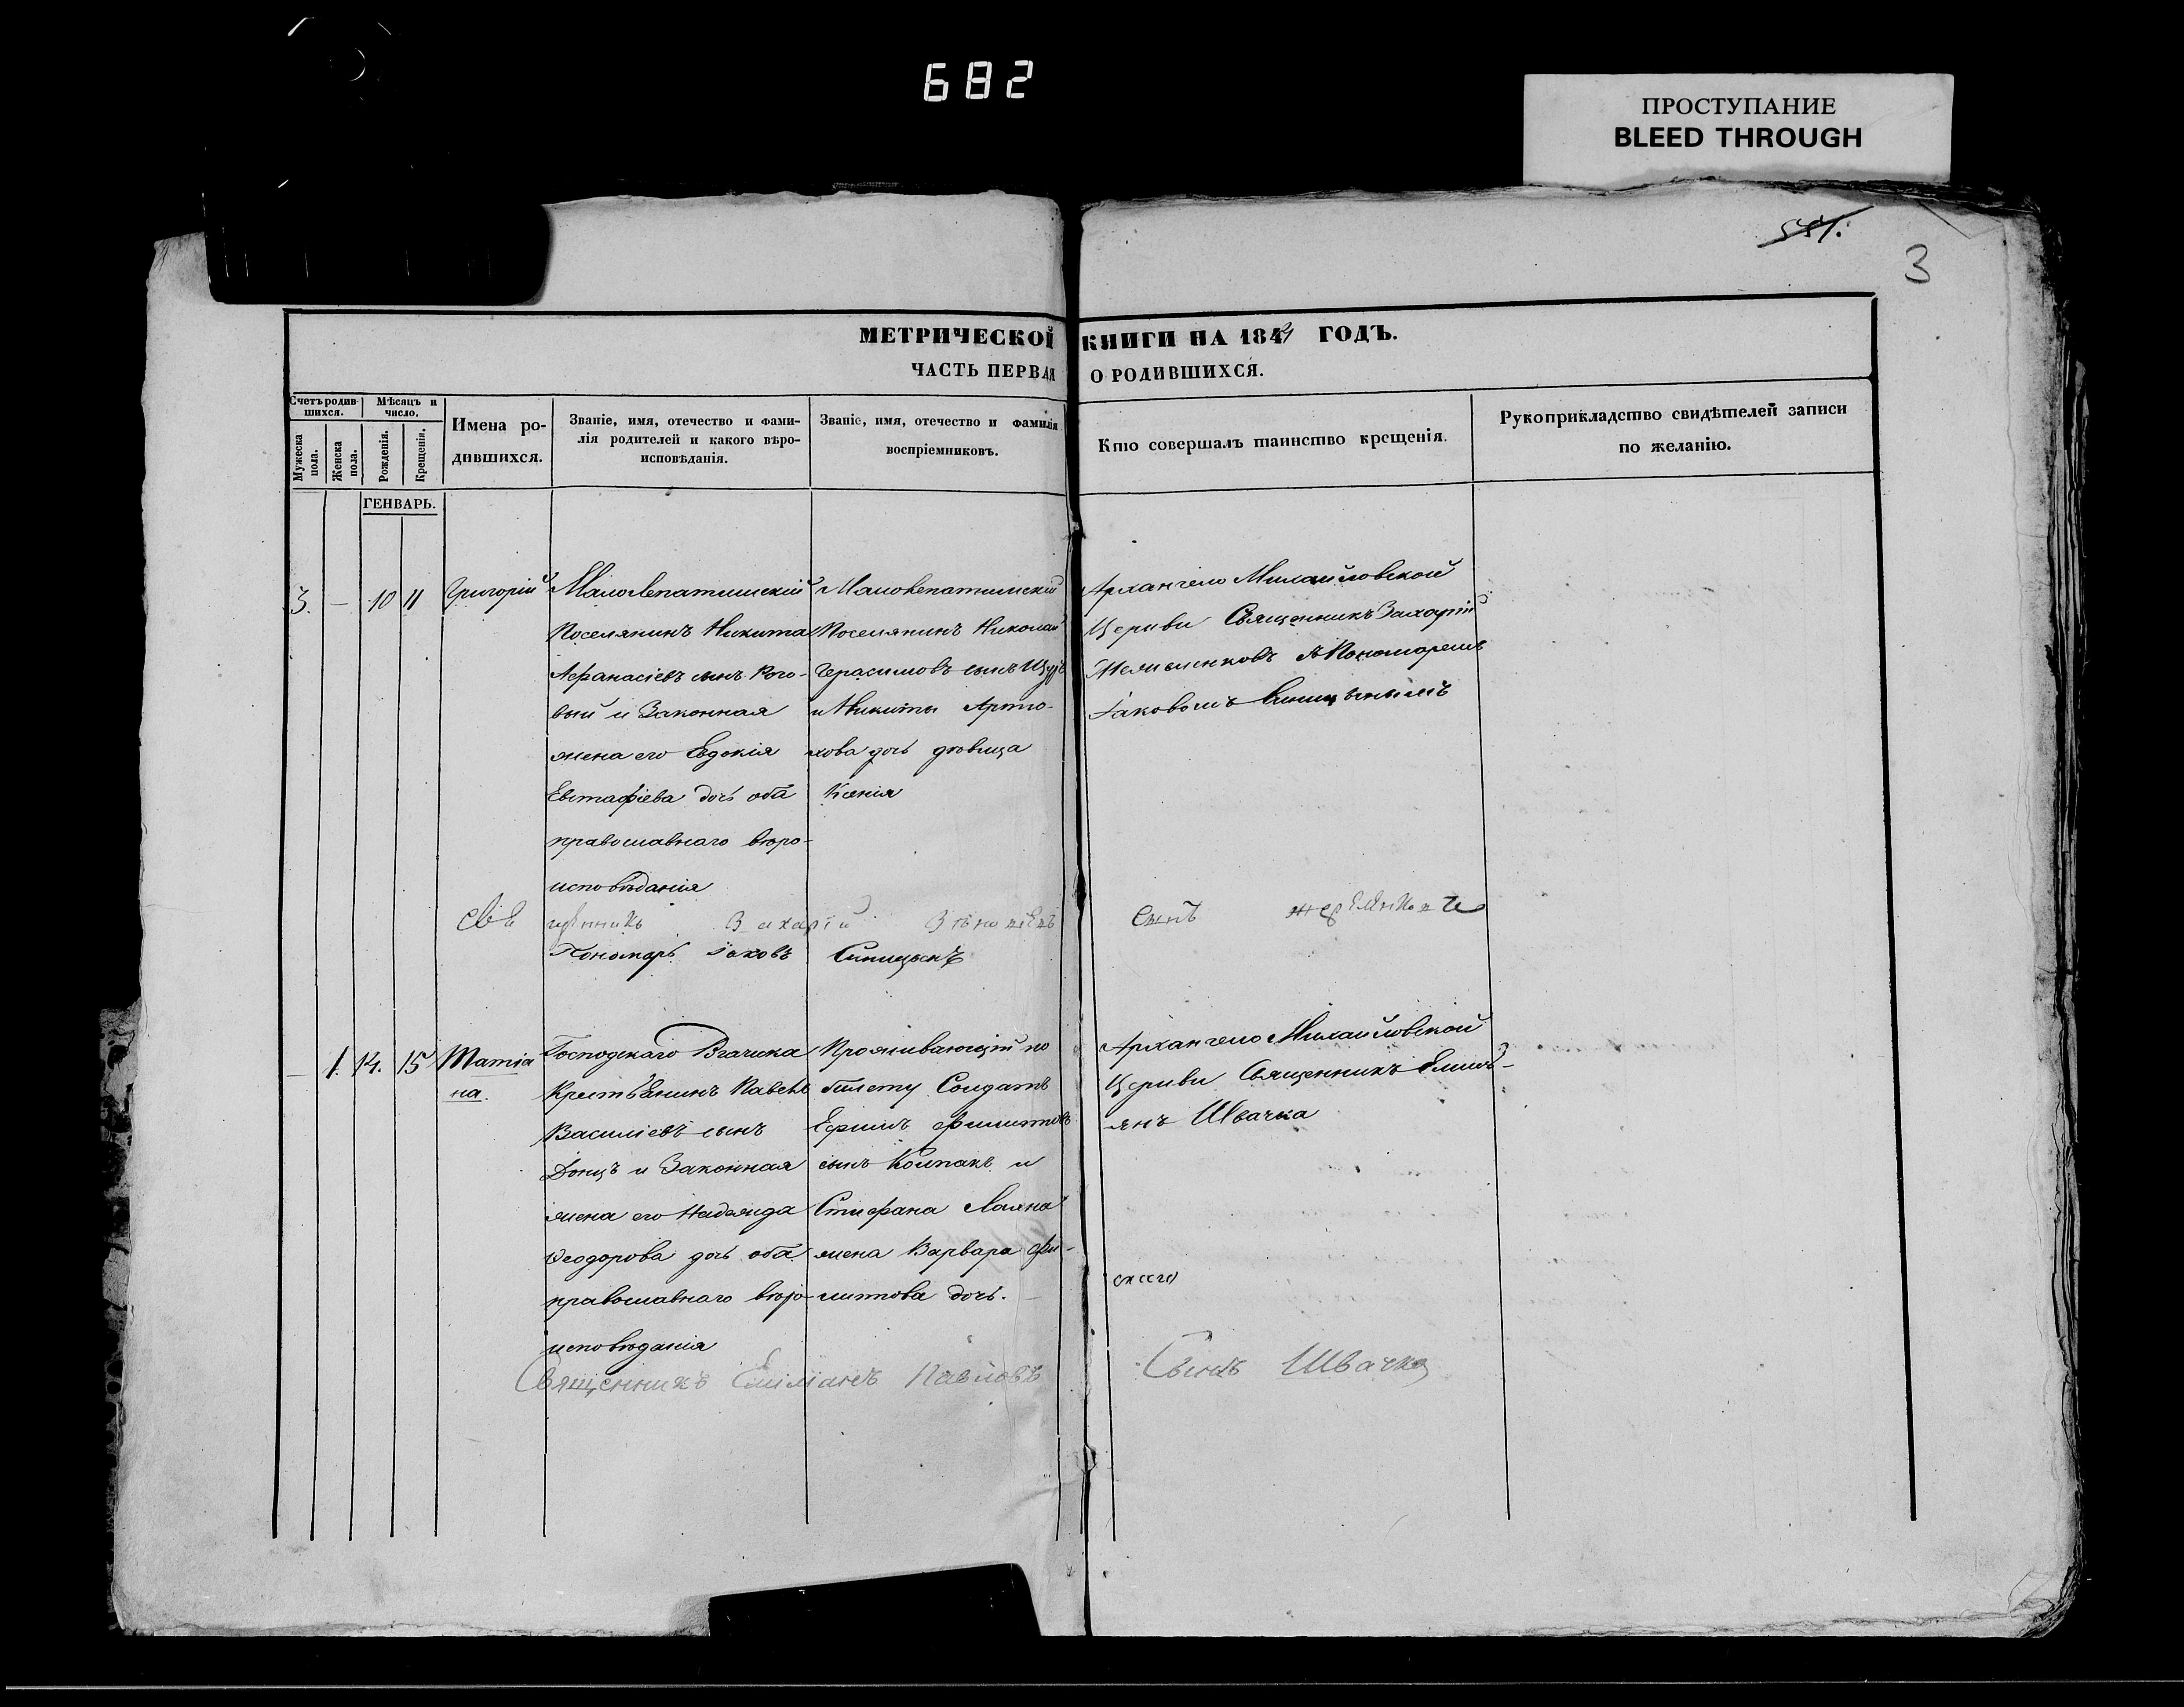 682
ПРОСТУПАНИЕ
BLEED THROUGH
3
МЕТРИЧЕСКОЙ КНИГИ НА 184 ГОДЪ.
ЧАСТЬ ПЕРВАЯ О РОДИВШИХСЯ.
Счетъ родив-
шихся.
Мужеска
пола.
Женска
пола.
Мѣсяцъ и
число.
Рожденія.
Крещенія.
Имена ро-
дившихся.
Званіе, имя, отечество и фами-
лія родителей и какого вѣро-
исповѣданія.
Званіе, имя, отечество и фамилія
воспріемниковъ.
Кто совершалъ таинство крещенія.
Рукоприкладство свидѣтелей записи
по желанію.
ГЕНВАРЬ.
3.
—
10
11
Григорій
Поселянинъ Никита
Афанасіевъ сынъ Рого-
вый и Законная
жена его Евдокія
Евстафіева дочь оба
православнаго вѣро-
исповѣданія
Поселянинъ Николай
Герасимовъ сынъ
и Никиты Артю-
хова дочь дѣвица
Ксенія
Архангело Михайловской
Церкви Священникъ Захарій
съ Пономаремъ
Іаковомъ Синицынымъ
Захарій
Сынъ
Пономарь Іаковъ Синицынъ
—
1.
14.
15
Татіа
на.
Господскаго
Крестьянинъ Павелъ
Василіевъ сынъ
Донцъ и Законная
жена его Надежда
Ѳеодорова дочь оба
православнаго вѣро-
исповѣданія
Проживающій по
билету Солдатъ
Ефимъ Филиповъ
сынъ Колпакъ и
Стефана
жена Варвара Фи-
липова дочь.
Архангело Михайловской
Церкви Священникъ Емилі-
янъ Швачка
Священникъ Емиліанъ Павловъ
Сынъ Швачка